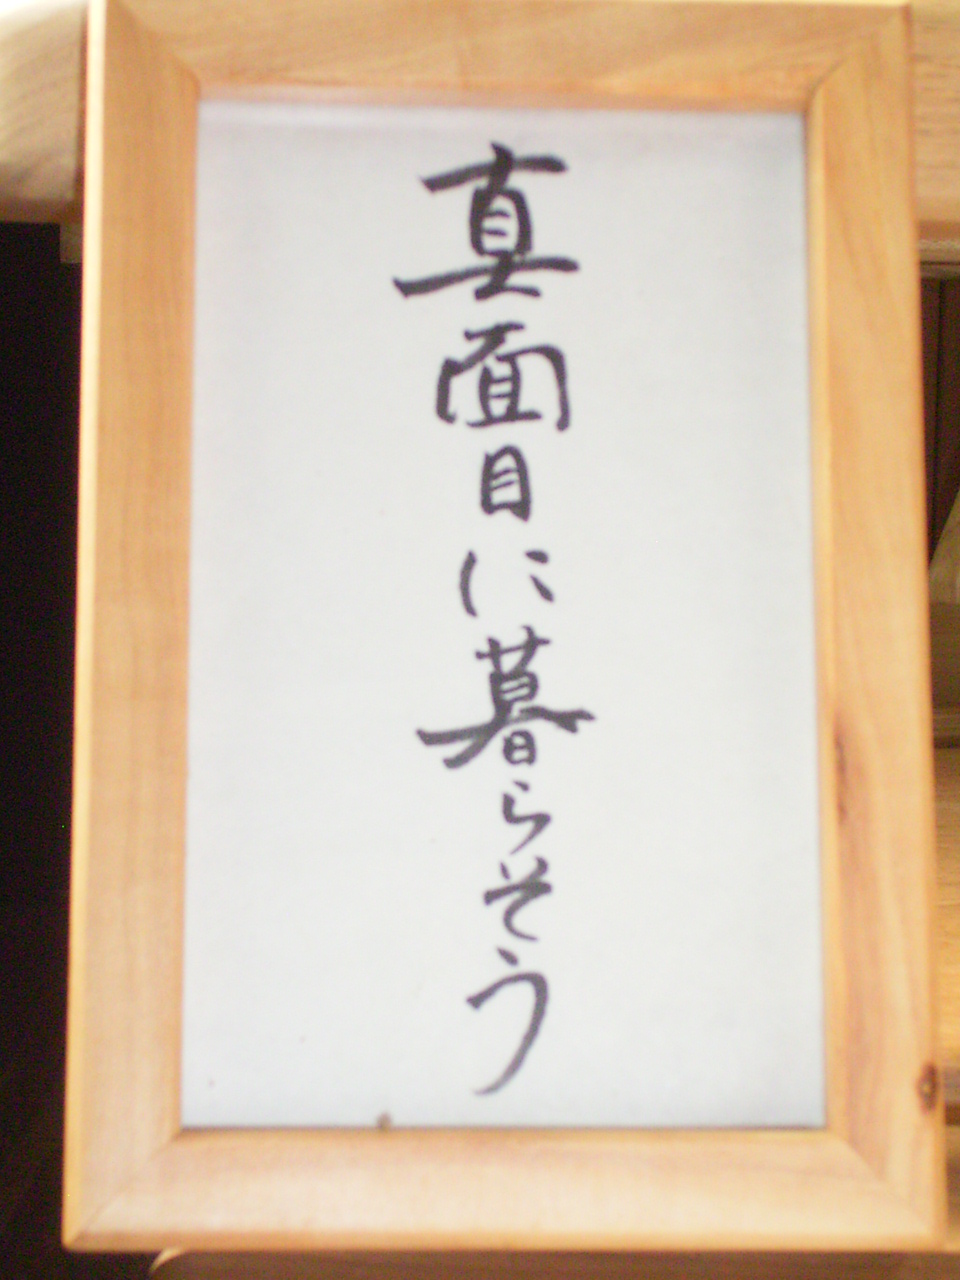 真面目に暮らそう